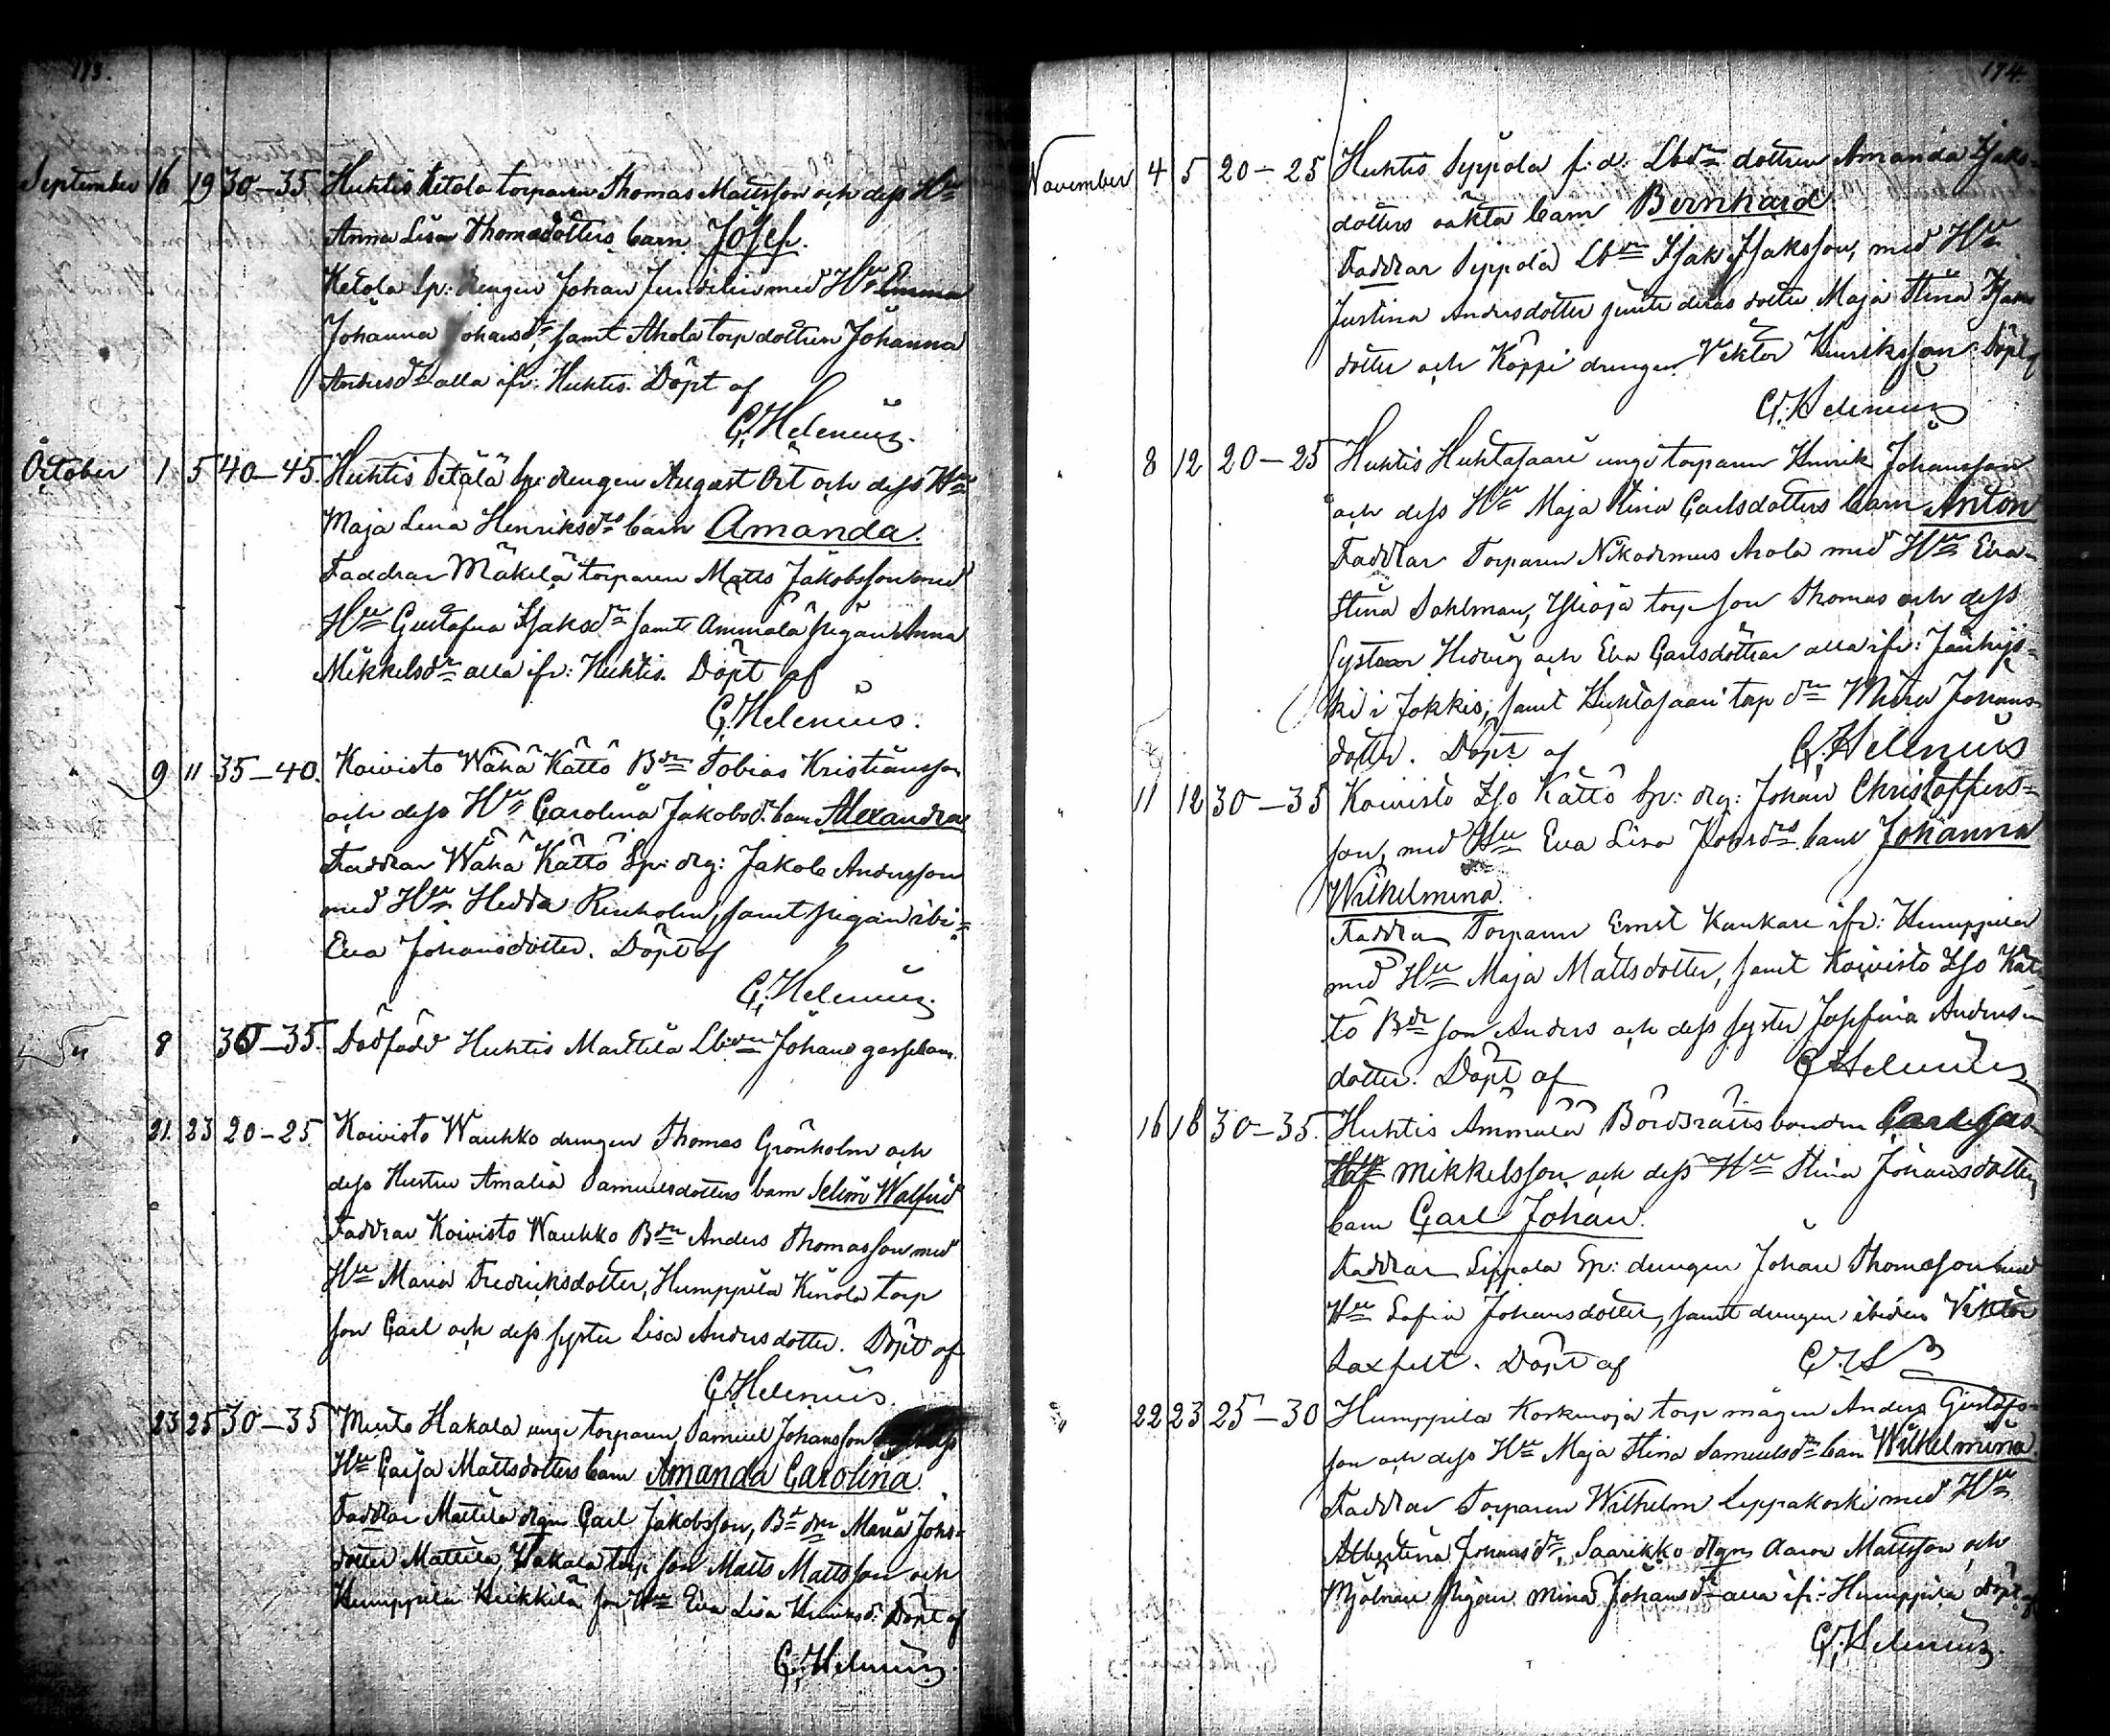 173.
September 16 19 30–35 Huhtis Ketola torparen Thomas Mattsson och dess Hu
Anna Lisa Thomædotters barn Josef.
Ketola Sp: drengen Johan med Hu Emma
Johanna Johansdr, samt Ahola torp dottren Johanna
Andersdr alla ifr: Huhtis. Döpt af
G. Helenius.
October 1 5 40–45. Huhtis Petälä Sp: drengen August Ört och dess Hu
Maja Lena Henriksdrs barn Amanda.
Faddrar Mäkelä torparen Matts Jakobsson med
Hu Gustafva Isaksdr samt Ammälä pigan Anna
Mikkelsdr alla ifr: Huhtis. Döpt af
G. Helenius.
" 9 11 35–40. Koivisto Wähä Kättö Bdn Tobias Kristiansson
och dess Hu Carolina Jakobsd. barn Alexandra
Faddrar Wähä Kättö Sp: drg: Jakob Andersson
med Hu Hedda Renholm, samt pigan ibi=
Eva Johansdotter. Döpt af
G. Helenius.
" 8 30–35. Dödfödd Huhtis Marttila Johans gossebarn.
" 21. 23 20–25. Koivisto Wauhko drengen Thomas Grönholm och
dess Hustru Amalia Samuelsdotters barn Selim Walfrid
Faddrar Koivisto Wauhko Bdn Anders Thomasson med
Hu Maria Fredriksdotter, Humppila Kinola torp
son Carl och dess syster Lisa Andersdotter. Döpt af
G. Helenius.
" 23 25 30–35 Murto Hakala unge torparen Samuel Johansson
Hu Cajsa Mattsdotters barn Amanda Carolina.
Faddrar Mattila drgn Carl Jakobsson, Maria Johs=
dotter Mattila, Hakala torp son Matts Mattsson och
Humppila Heikkilä Eva Lisa Henriksd. Döpt af
G. Helenius.
174.
November 4 5 20–25 Huhtis Seppola f:d: Lbdn dottren Amanda Isaks=
dotters oäkta barn Bernhard
Faddrar Seppola Lbdn Isak Isaksson, med Hu
Justina Andersdotter jemte deras dotter Maja Stina Isaks
dotter och Köppi drengen Viktor Henriksson. Döpt af
G. Helenius
8 12 20–25 Huhtis Huhtasaari unge torparen Henrik Johansson
och dess Hu Maja Stina Carlsdotters barn Anton
Faddrar Torparen Nikodemus Arola med Hu Eva
Stina Sahlman, torp son Thomas och dess
Systrar Hedvig och Eva Carlsdöttrar alla ifr: Jänhijs=
ki i Jokkis, samt Huhtasaari torp dr Mina Johans=
dotter. Döpt af G. Helenius
" 11 12 30–35 Koivisto Iso Kättö Sp: drg: Johan Christoffers=
son, med Hu Eva Lisa Jakobsdrs barn Johanna
Wilhelmina.
Faddrar Torparen Ernst Kankare ifr: Humppila
med Hu Maja Mattsdotter, samt Koivisto Iso Kät=
tö Bdn son Anders och dess syster Josefina Anders=
dotter. Döpt af G. Helenius
16 18 30–35. Huhtis Ämmälä Bördsrättsbonden
Mikkelsson och dess Hu Stina Johansdotters
barn Carl Johan.
Faddrar Seppola Sp: drengen Johan Thomasson med
Hu Sofia Johansdotter, samt drengen ibidem Viktor
Saxfelt. Döpt af
" 22 23 25–30 Humppila Koskinoja torp mågen Anders Gustafs=
son och dess Hu Maja Stina Samuelsdrs barn Wilhelmina.
Faddrar Torparen Wilhelm Leppäkoski med Hu
Albertina Johansdr, Saarikko drgn Aaron Mattsson och
Mjölnare pigan Mina Johansdr alla ifr: Humppila Döpt af
G. Helenius.